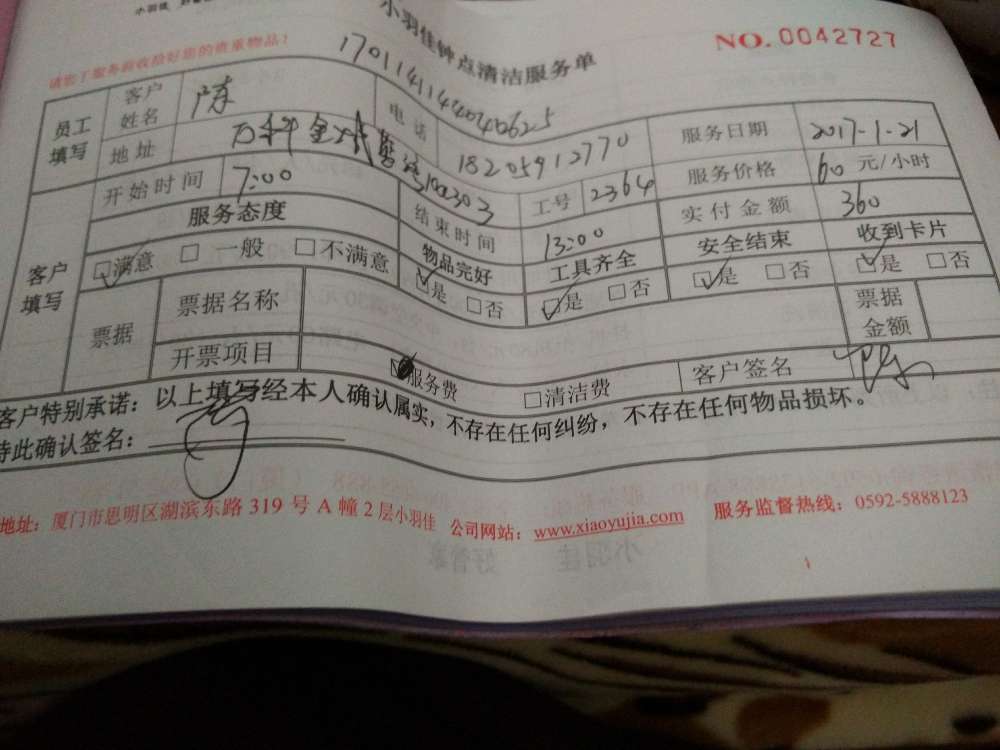 小羽佳
小羽佳钟点清洁服务单
NO. 0042727
请您于服务前收拾好您的贵重物品!
1701141144040625
员工填写 客户姓名 陈 电话 18205912770 服务日期 2017-1-21
地址 万科金域 100303 工号 2364 服务价格 60 元/小时
客户填写 开始时间 7:00 结束时间 13:00 实付金额 360
服务态度 物品完好 工具齐全 安全结束 收到卡片
☑满意 □ 一般 □ 不满意 ☑是 □否 ☑是 □否 ☑是 □否 ☑是 □否
票据 票据名称 票据金额
开票项目 服务费 □清洁费 客户签名 陈
客户特别承诺:以上填写经本人确认属实,不存在任何纠纷,不存在任何物品损坏。
特此确认签名:
地址:厦门市思明区湖滨东路 319 号 A 幢 2 层小羽佳 公司网站:www.xiaoyujia.com 服务监督热线:0592-5888123
1